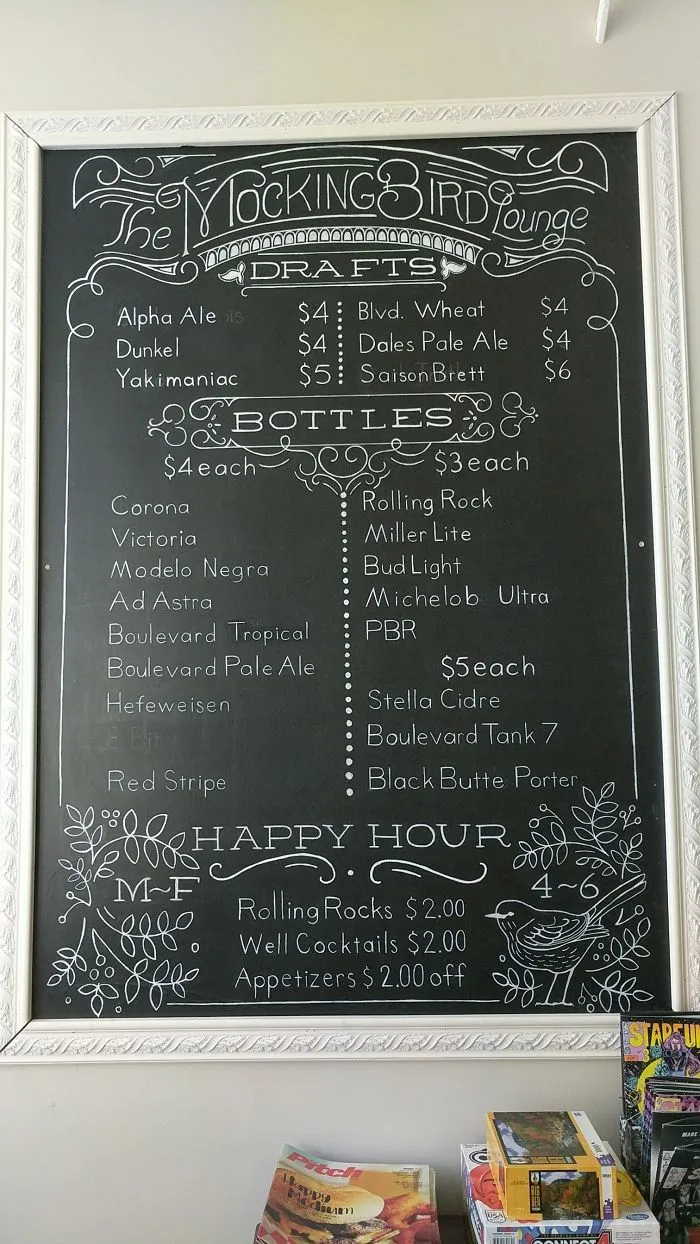 The MockingBird Lounge
DRAFTS
Alpha Ale $4
Dunkel $4
Yakimaniac $5
Blvd. Wheat $4
Dales Pale Ale $4
Saison Brett $6
BOTTLES
$4 each
Corona
Victoria
Modelo Negra
Ad Astra
Boulevard Tropical
Boulevard Pale Ale
Hefeweisen
Red Stripe
$3 each
Rolling Rock
Miller Lite
Bud Light
Michelob Ultra
PBR
$5 each
Stella Cidre
Boulevard Tank 7
Black Butte Porter
HAPPY HOUR
M~F 4~6
Rolling Rocks $2.00
Well Cocktails $2.00
Appetizers $2.00 off
Pitch
Happy
Medium
USA
CONNECT 4
MADE